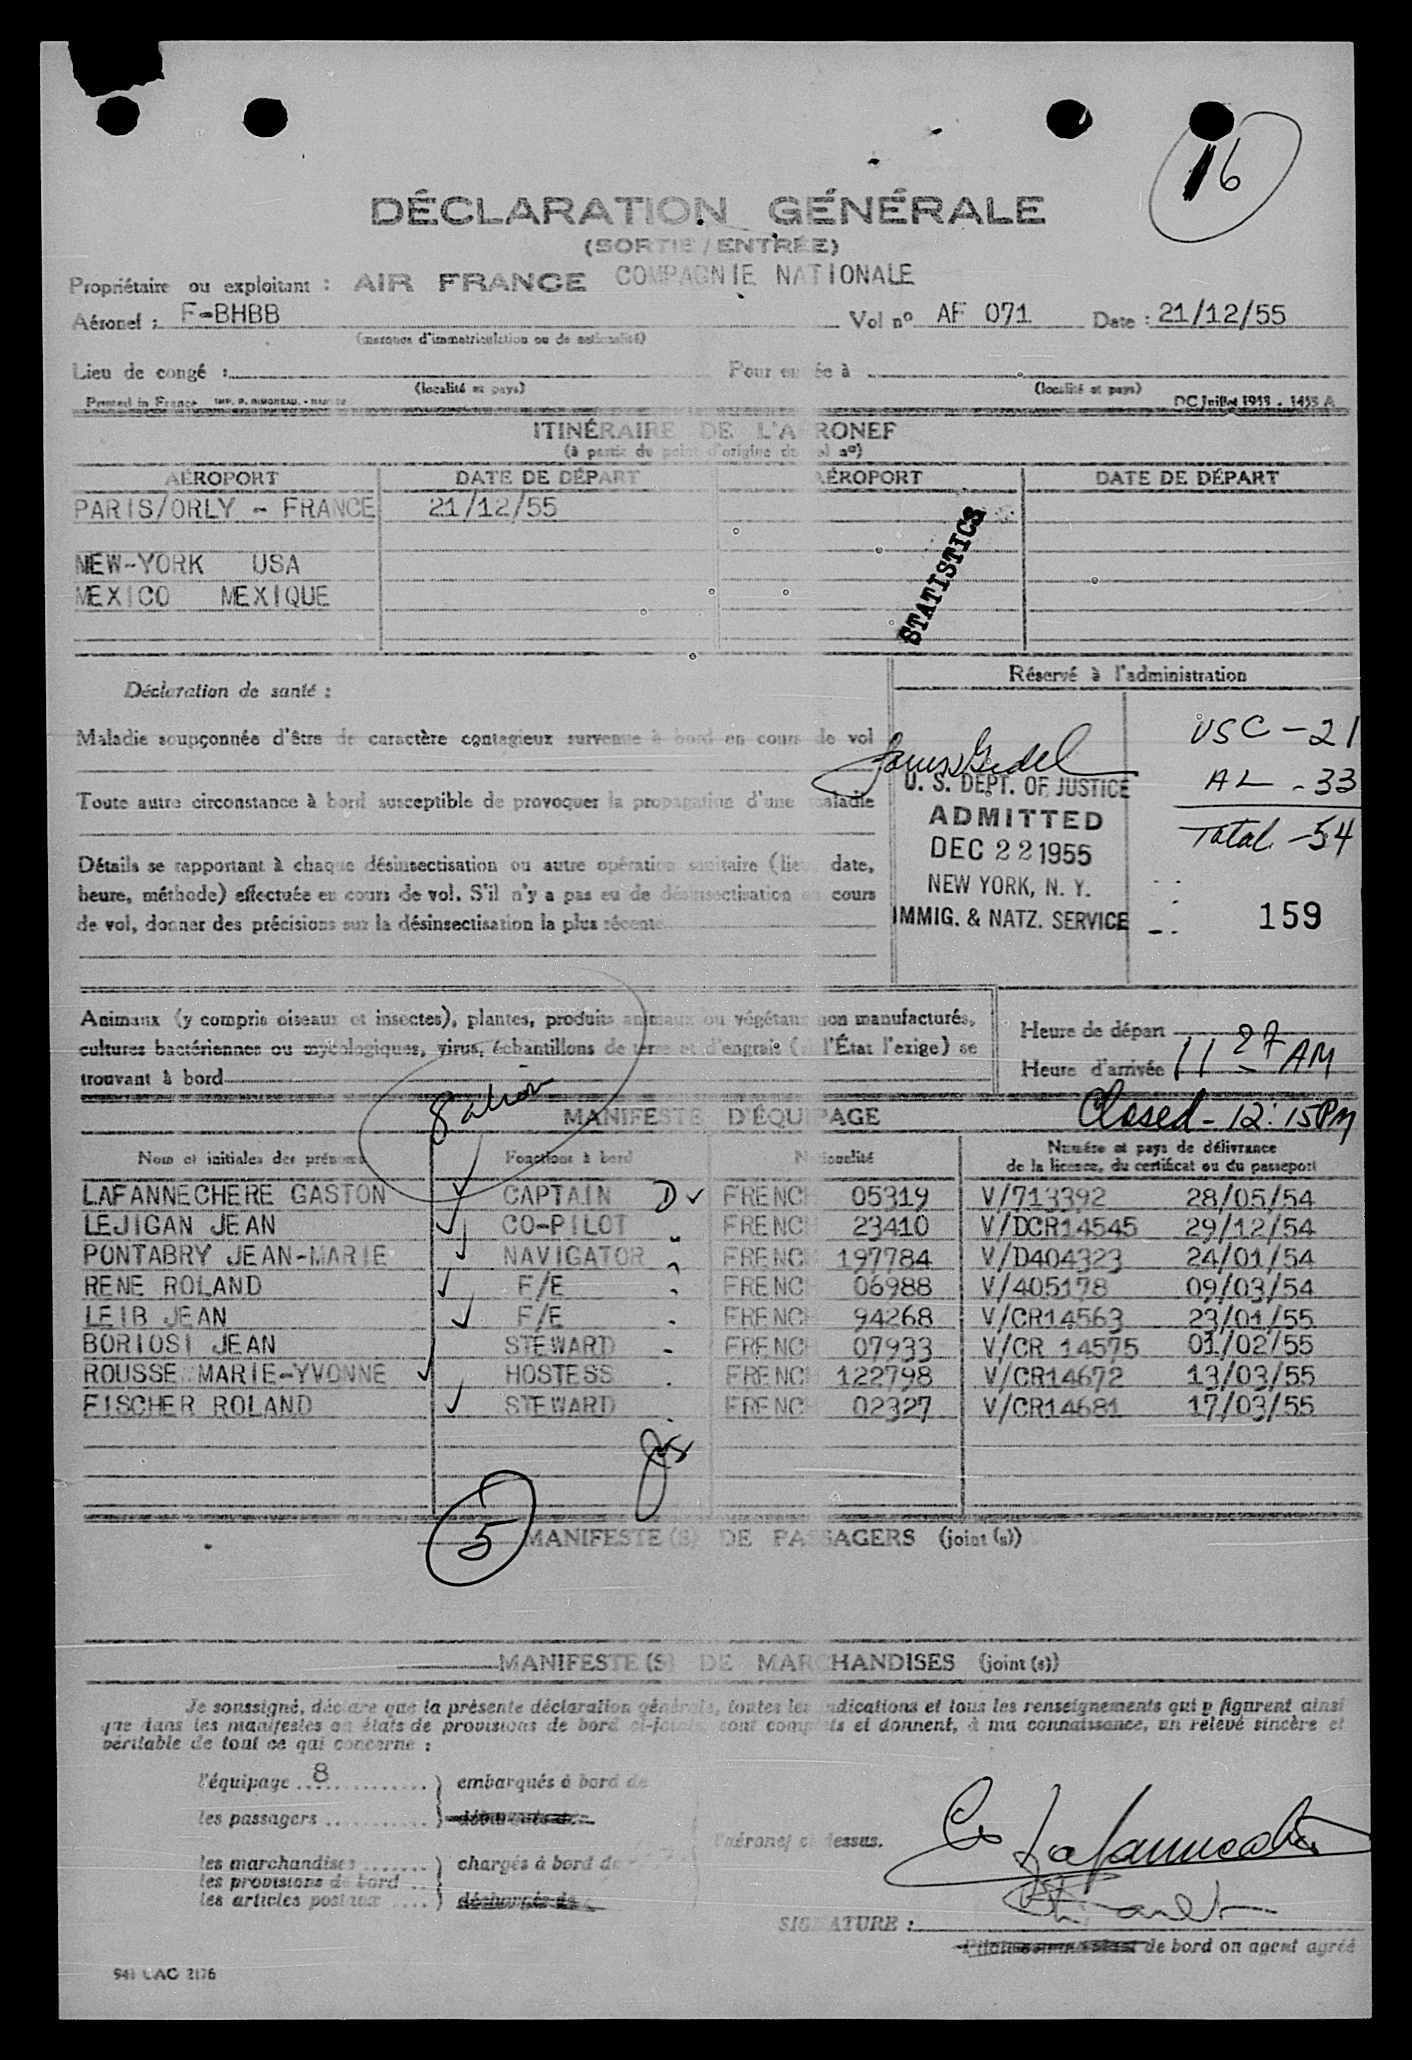 16
DÉCLARATION GÉNÉRALE
(SORTIE / ENTRÉE)
Propriétaire ou exploitant : AIR FRANCE COMPAGNIE NATIONALE
Aéronef : F-BHBB Vol nº AF 071 Date : 21/12/55
(marques d'immatriculation ou de nationalité)
Lieu de congé : Pour entrée à
(localité et pays) (localité et pays)
Printed in France IMP. P. DC Juillet 1953 - 1455 A
ITINÉRAIRE DE L'AÉRONEF
(à partir du point d'origine du vol nº)
AÉROPORT DATE DE DÉPART AÉROPORT DATE DE DÉPART
PARIS/ORLY - FRANCE 21/12/55
NEW-YORK USA
MEXICO MEXIQUE
STATISTICS
Déclaration de santé :
Réservé à l'administration
Maladie soupçonnée d'être de caractère contagieux survenue à bord en cours de vol
Toute autre circonstance à bord susceptible de provoquer la propagation d'une maladie
Détails se rapportant à chaque désinsectisation ou autre opération sanitaire (lieu, date,
heure, méthode) effectuée en cours de vol. S'il n'y a pas eu de désinsectisation en cours
de vol, donner des précisions sur la désinsectisation la plus récente
U. S. DEPT. OF JUSTICE
ADMITTED
DEC 22 1955
NEW YORK, N. Y.
IMMIG. & NATZ. SERVICE
USC - 21
AL - 33
Total - 54
159
Animaux (y compris oiseaux et insectes), plantes, produits animaux ou végétaux non manufacturés,
cultures bactériennes ou mycologiques, virus, échantillons de terre et d'engrais (si l'État l'exige) se
trouvant à bord
Heure de départ
Heure d'arrivée 11 27 AM
Closed - 12:15 PM
MANIFESTE D'ÉQUIPAGE
Nom et initiales des prénoms Fonctions à bord Nationalité Numéro et pays de délivrance
de la licence, du certificat ou du passeport
LAFANNECHERE GASTON CAPTAIN D FRENCH 05319 V/713392 28/05/54
LEJIGAN JEAN CO-PILOT FRENCH 23410 V/DCR14545 29/12/54
PONTABRY JEAN-MARIE NAVIGATOR FRENCH 197784 V/D404323 24/01/54
RENE ROLAND F/E FRENCH 06988 V/405178 09/03/54
LEIB JEAN F/E FRENCH 94268 V/CR14563 23/01/55
BORIOSI JEAN STEWARD FRENCH 07933 V/CR 14575 01/02/55
ROUSSE MARIE-YVONNE HOSTESS FRENCH 122798 V/CR14672 13/03/55
FISCHER ROLAND STEWARD FRENCH 02327 V/CR14681 17/03/55
5
MANIFESTE (S) DE PASSAGERS (joint (s))
MANIFESTE (S) DE MARCHANDISES (joint (s))
Je soussigné, déclare que la présente déclaration générale, toutes les indications et tous les renseignements qui y figurent ainsi
que dans les manifestes ou états de provisions de bord ci-joints, sont complets et donnent, à ma connaissance, un relevé sincère et
véritable de tout ce qui concerne :
l'équipage 8 embarqués à bord de
les passagers
l'aéronef ci-dessus.
les marchandises chargés à bord de
les provisions de bord
les articles postaux
SIGNATURE :
de bord ou agent agréé